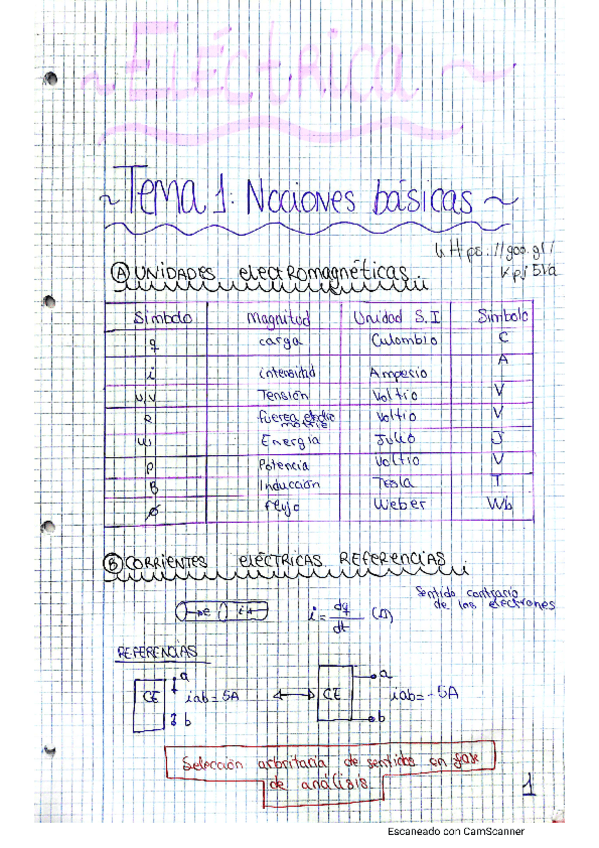 ~ Eléctrica ~
~ Tema 1: Nociones básicas ~
https://goo.gl/
A UNIDADES electromagnéticas
Símbolo Magnitud Unidad S.I Símbolo
q carga Culombio C
i intensidad Amperio A
u,v Tensión Voltio V
fuerza electro motriz Voltio V
w Energía Julio J
p Potencia Voltio V
B Inducción Tesla T
ϕ Flujo Weber Wb
B CORRIENTES ELÉCTRICAS REFERENCIAS
e i i = dq/dt (A) Sentido contrario
de los electrones
REFERENCIAS
CE a b iab = 5A CE a b iab = -5A
Selección arbritaria de sentido en fase
de análisis
1
Escaneado con CamScanner